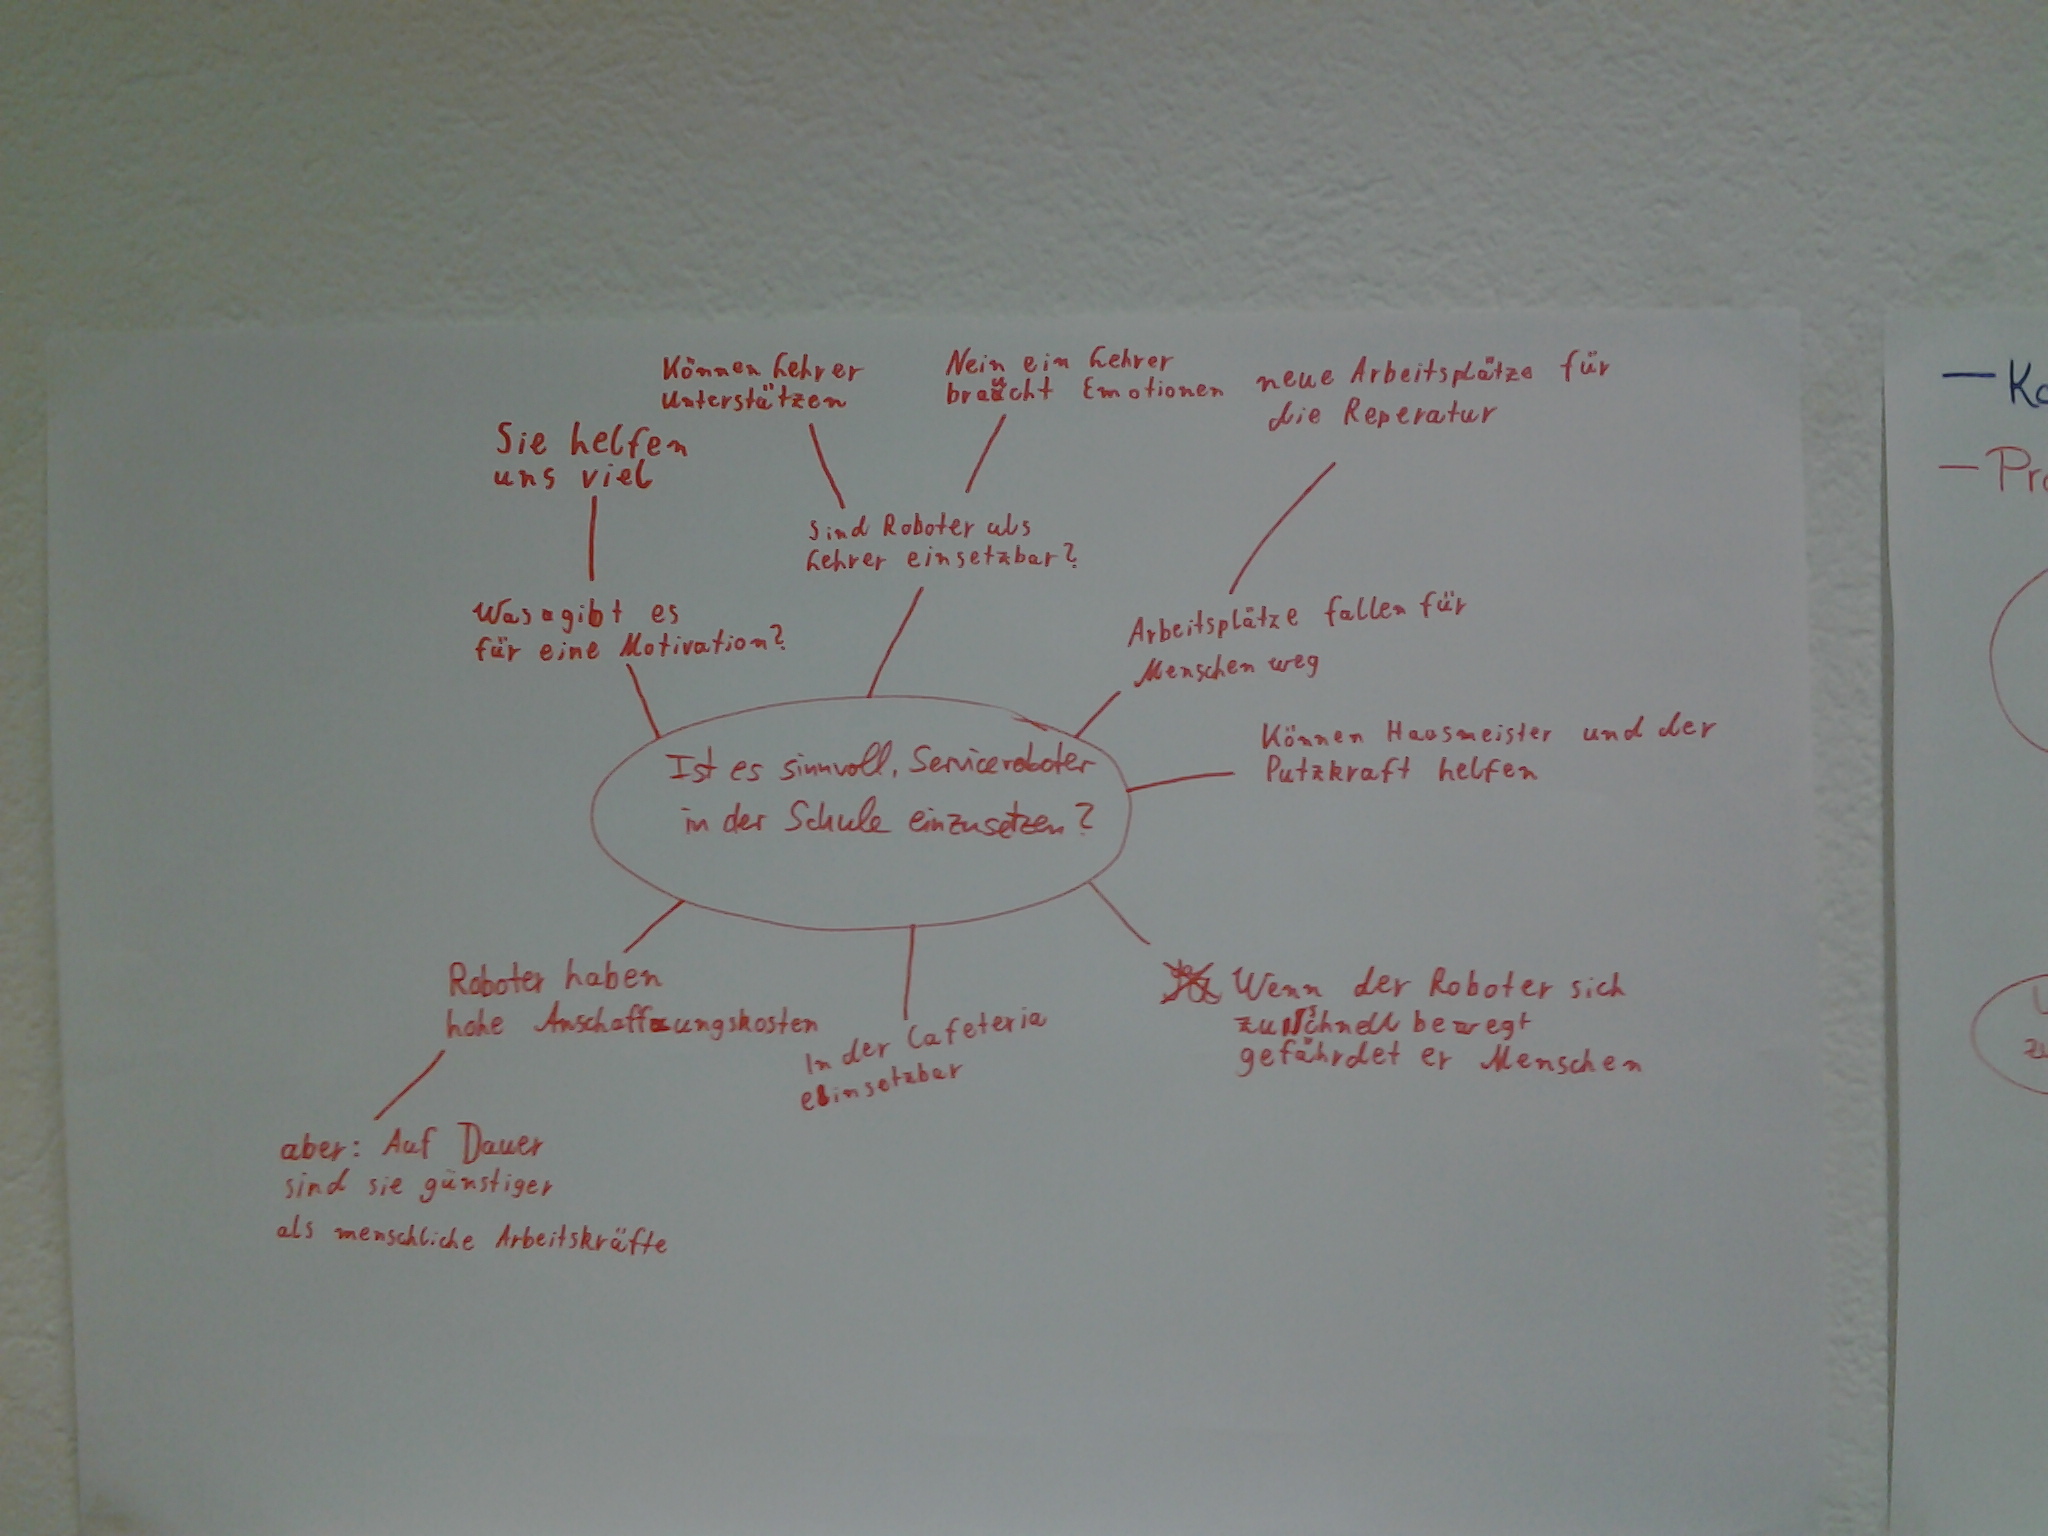 Können Lehrer
unterstützen
Nein ein Lehrer
braucht Emotionen
neue Arbeitsplätze für
die Reperatur
Sie helfen
uns viel
Sind Roboter als
Lehrer einsetzbar?
Was gibt es
für eine Motivation?
Arbeitsplätze fallen für
Menschen weg
Können Hausmeister und der
Putzkraft helfen
Ist es sinnvoll, Serviceroboter
in der Schule einzusetzen?
Roboter haben
hohe Anschaffungskosten
In der Cafeteria
einsetzbar
Wenn der Roboter sich
zu schnell bewegt
gefährdet er Menschen
aber: Auf Dauer
sind sie günstiger
als menschliche Arbeitskräfte